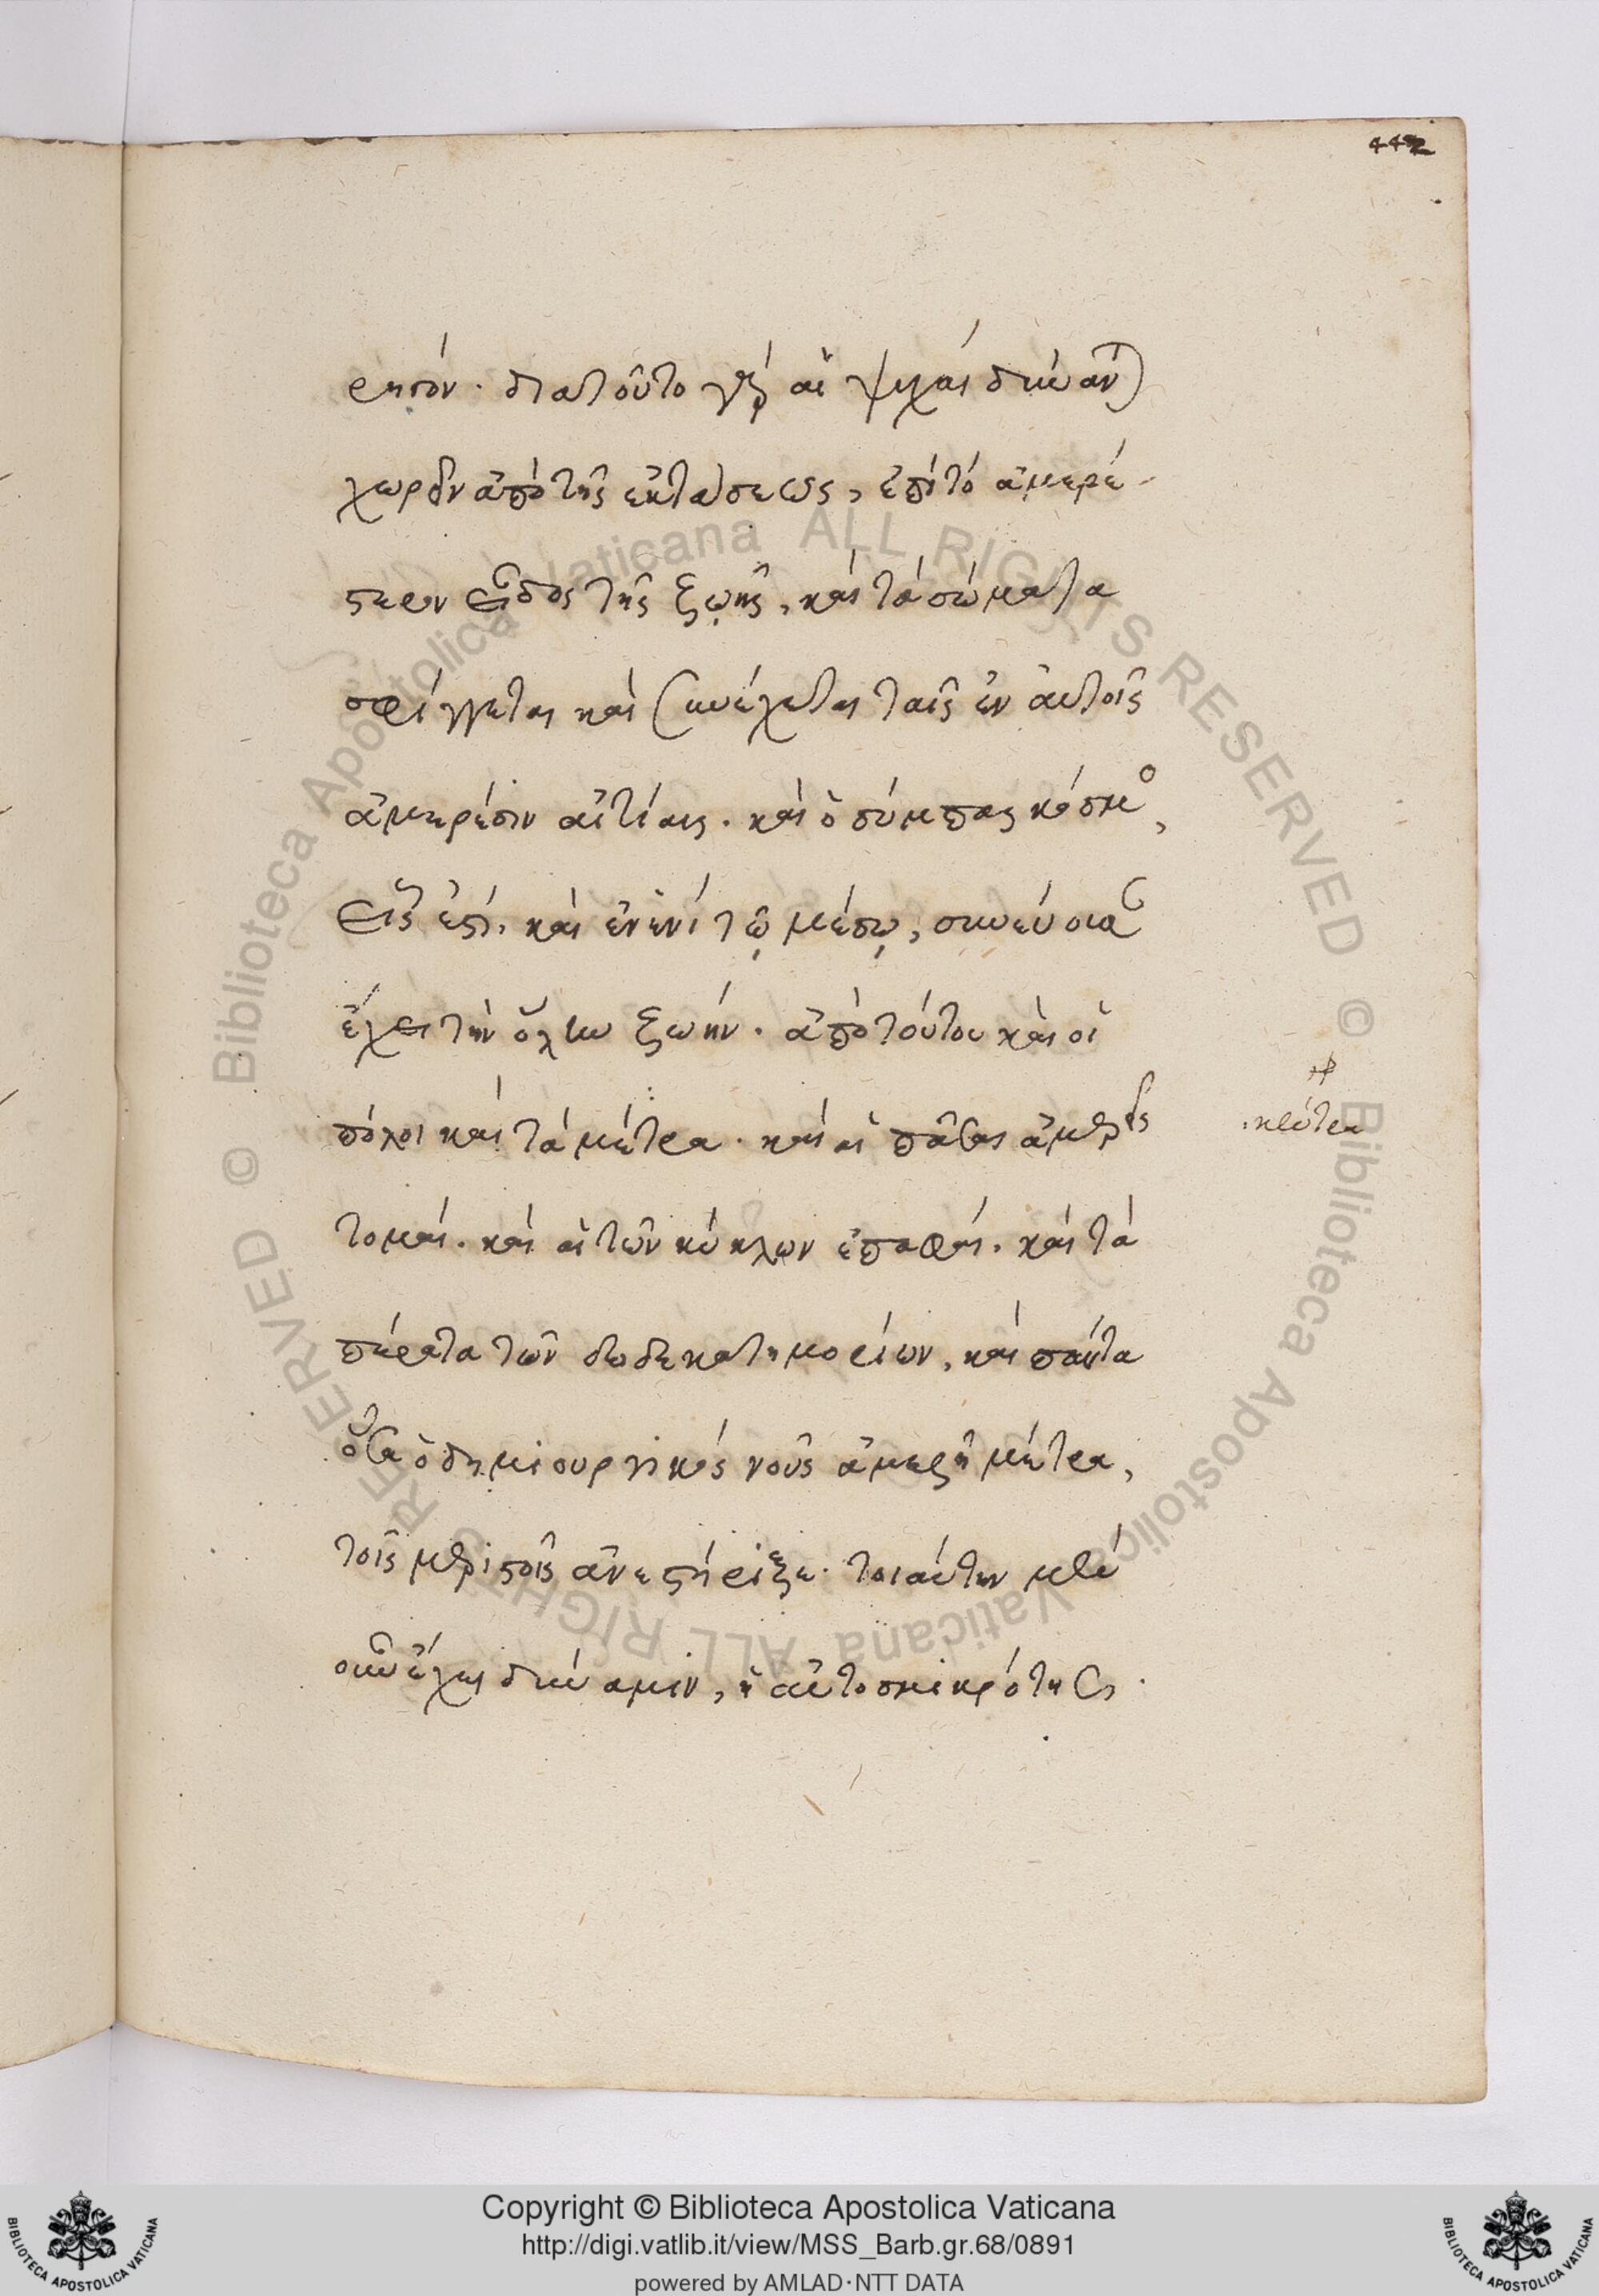 442
ρητόν. διατοῦτο γὰρ αἱ ψυχαὶ δύναντ)
χωρεῖν ἀπὸ τῆς ἐκτάσεως, ἐπὶ τὸ ἀμερέ-
στερον εἶδος τῆς ζωῆς, καὶ τὰ σώματα
σφίγγεται καὶ συνέχεται ταῖς ἐν αὐτοῖς
ἀμερέσιν αἰτίαις. καὶ ὁ σύμπας κόσμος,
εἷς ἐστι. καὶ ἐν ἑνὶ τῷ μέσῳ, συνεύουσαν
ἔχει τὴν ὅλην ζωήν. ἀπὸ τούτου καὶ οἱ
πόλοι καὶ τὰ μέτρα. καὶ αἱ πᾶσαι ἀμερεῖς
κέντρα
τομαί. καὶ αἱ τῶν κύκλων ἐπαφαί. καὶ τὰ
πέρατα τῶν δωδεκατημορίων, καὶ πάντα
ὅσα ὁ δημιουργικὸς νοῦς ἀμερῆ μέτρα,
τοῖς μεριστοῖς ἀνεστήριξε. τοιαύτην μὲν
οὖν ἔχει δύναμιν, ἡ αὐτοσμικρότης.
© Biblioteca Apostolica Vaticana ALL RIGHTS RESERVED
© Biblioteca Apostolica Vaticana ALL RIGHTS RESERVED
BIBLIOTECA APOSTOLICA VATICANA
Copyright © Biblioteca Apostolica Vaticana
http://digi.vatlib.it/view/MSS_Barb.gr.68/0891
powered by AMLAD·NTT DATA
BIBLIOTECA APOSTOLICA VATICANA